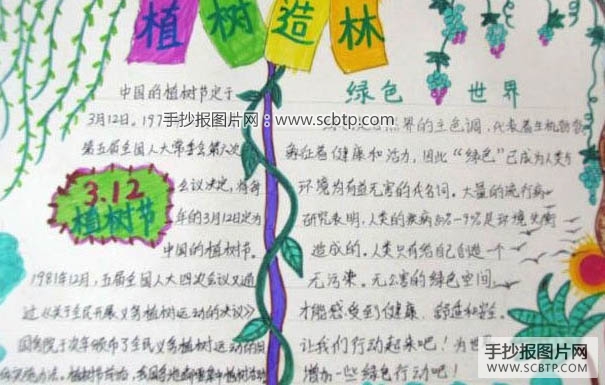 植树造林
中国的植树节定于
3月12日。197
第五届全国人大常委会第六次
会议决定，将每
年的3月12日定为
中国的植树节。
1981年12月，五届全国人大四次会议又通
过《关于全民开展义务植树运动的决议》
国务院于次年颁布了全民义务植树运动的
3.12
植树节
手抄报图片网：www.scbtp.com
绿色 世界
界的主色调，代表着生机勃勃
象征着健康和活力，因此“绿色”已成为人类与
环境为有益无害的代名词。大量的流行病
研究表明，人类的疾病
是环境
造成的。人类只有给自己创造一个
无污染。无公害的绿色空间，
才能感受到健康、舒适和安全。
让我们行动起来吧！为世
增加一些绿色行动吧！
手抄报图片网
WWW.SCBTP.COM